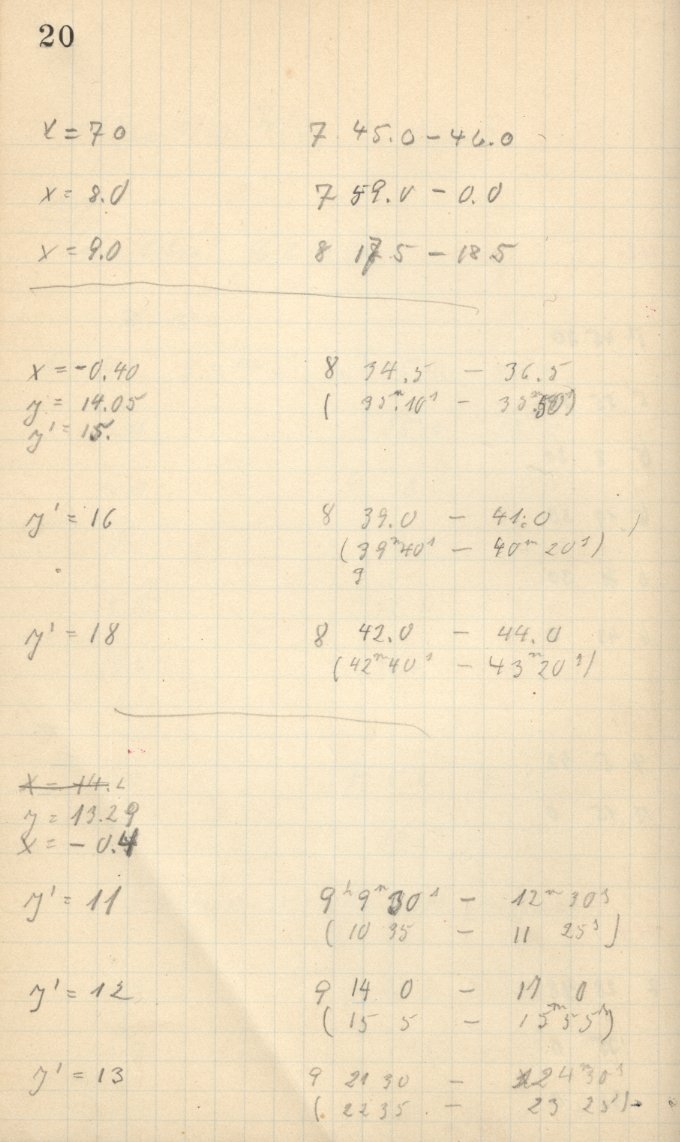 20
x = 7 0 7 45.0 – 46.0
x = 8.0 7 59.0 – 0.0
x = 9.0 8 17 5 – 18 5
x = -0.40 8 34.5 – 36.5
y = 14.05 ( 35ᵐ.10ˢ – 35ᵐ.50ˢ)
y' = 15.
y' = 16 8 39.0 – 41.0
(39ᵐ40ˢ – 40ᵐ20ˢ)
9
y' = 18 8 42.0 – 44.0
(42ᵐ40ˢ – 43ᵐ20ˢ)
y = 13.29
x = – 0.4
y' = 11 9ʰ9ᵐ30ˢ – 12ᵐ30ˢ
( 10 35 – 11 25ˢ)
y' = 12 9 14 0 – 17 0
( 15 5 – 15ᵐ55ˢ)
y' = 13 9 21 30 – 24ᵐ30ˢ
( 22 35 – 23 25ˢ)